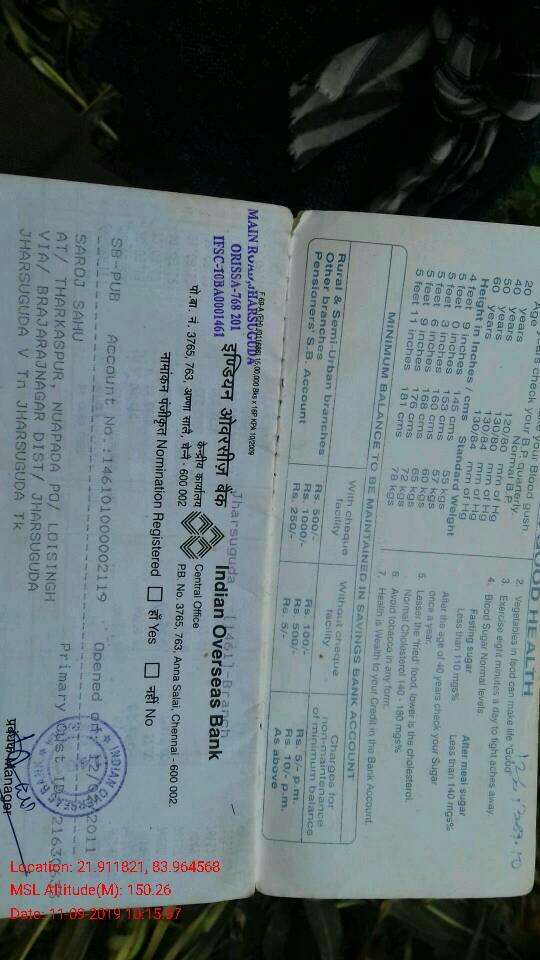 GOOD HEALTH
20 years
40 years 120/80 mm of Hg
50 years 130/80 mm of Hg
60 years 130/84 mm of Hg
Height in inches / cms Standard Weight
5 feet 0 inches 153 cms 55 kgs
5 feet 3 inches 160 cms 57 kgs
5 feet 6 inches 168 cms 60 kgs
5 feet 9 inches 176 cms 65 kgs
5 feet 11 inches 181 cms 72 kgs
78 kgs
2. Vegetables in food can make life "Good"
3. Exercise eight minutes a day to fight aches away.
4. Blood Sugar Normal levels.
Fasting sugar After meal sugar
Less than 110 mgs% Less than 140 mgs%
After the age of 40 years check your Sugar
once a year.
5. Lesser the "fried" food, lower is the cholesterol.
Normal Cholesterol 140 - 180 mgs%
6. Avoid tobacco in any form.
7. Health is Wealth to your Credit in the Bank Account.
MINIMUM BALANCE TO BE MAINTAINED IN SAVINGS BANK ACCOUNT
With cheque facility
Without cheque facility
Charges for non-maintenance of minimum balance
Rural & Semi-Urban branches Rs. 500/- Rs. 100/- Rs. 5/- p.m.
Other branches Rs. 1000/- Rs. 500/- Rs. 10/- p.m.
Pensioners' S.B. Account Rs. 250/- Rs. 5/- As above
MAIN ROAD, JHARSUGUDA
ORISSA-768 201
IFSC-IOBA0001461
Jharsuguda [1461]-Branch
इण्डियन ओवरसीज़ बैंक Indian Overseas Bank
केन्द्रीय कार्यालय Central Office
पो.बा. नं. 3765, 763, अण्णा सालै, चेन्नै - 600 002 P.B. No. 3765, 763, Anna Salai, Chennai - 600 002.
नामांकन पंजीकृत Nomination Registered हाँ Yes नहीं No
SB-PUB Account No:146101000002119 Opened on:
SAROJ SAHU Primary Cust ID:
AT/ THARKASPUR, NUAPADA PO/ LOISINGH
VIA/ BRAJARAJNAGAR DIST/ JHARSUGUDA
JHARSUGUDA V Tn JHARSUGUDA Tk
प्रबंधक Manager
Location: 21.911821, 83.964568
MSL Altitude(M): 150.26
Date: 11-09-2019 10:15:07